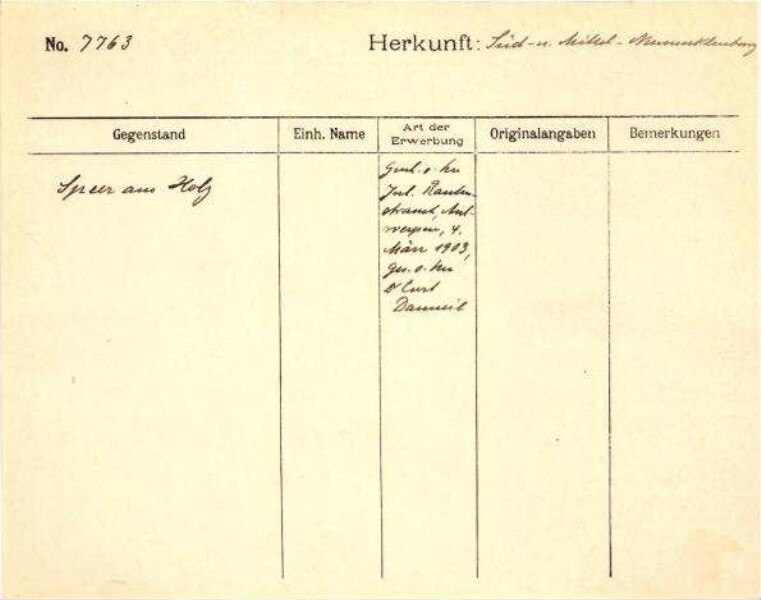 No. 7763 Herkunft: Süd- u. Mittel-Neumecklenburg
Gegenstand Einh. Name Art der Erwerbung Originalangaben Bemerkungen
Speer aus Holz
Gesch. v. Hn
Jul. Rauten-
strauch, Ant-
werpen, 4.
März 1903,
ges. v. Hn
Dr Curt
Danneil